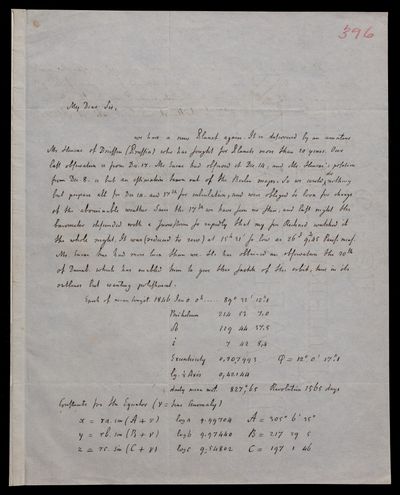 396
My Dear Sir,
we have a new Planet again. It is discovered by an amateur
Mr Hencke of Driessen (Prussia) who has sought for Planets more than 20 years. Our
last observation is from Dec. 14. Mr Encke has observed it Dec. 14, and Mr Hencke's position
from Dec. 8. is but an estimation taken out of the Berlin maps. So we could do nothing
but prepare all for Dec 14. and 17th for calculation, and were obliged to leave for change
of the abominable weather. Since the 17th we have seen no star, and last night the
barometer descended with a so rapidly that my watched it
the whole night. It was (reduced to zero) at 15h 31' so low as 26
Mr Encke has had more luck than we. He has observed an observation the 20th
of Decemb. which has enabled him to give this sketch of the orbit, true in its
outlines but wanting
Epoch of mean longit 1846 Jan 0. 0h .... 89° 32' 12."1
Perihelium 214 53 7,0
☊ 119 44 37,5
i 7 42 8,4
Eccentricity 0,207993 φ = 12° 0' 17,"1
lg. ½ Axis 0,42144
daily mean mot. 827,"65 Revolution 1565 days
Constants for the Equator (v = true Anomaly)
x = ra. sin (A + v) log a 9.99704 A = 305° 6' 35"
y = rb. sin (B + v) log b 9.97440 B = 217 29 5
z = rc. sin (C + v) log c 9,54802 C = 197 1 46